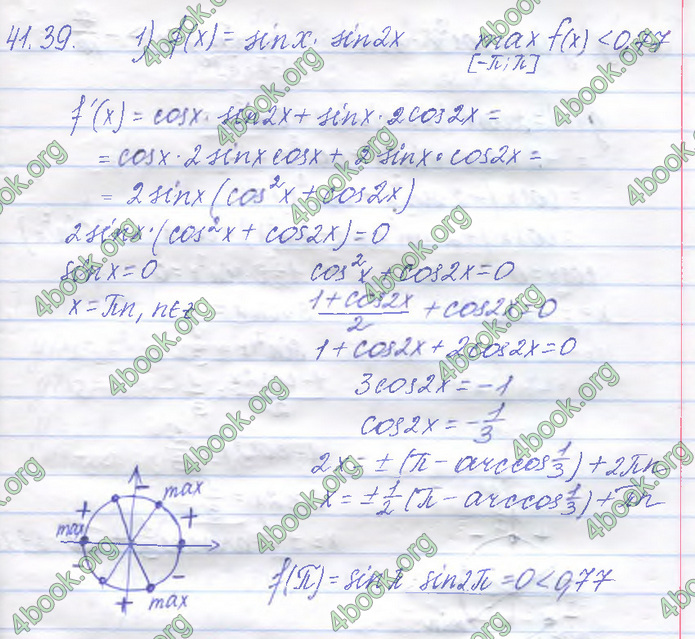 41.39. 1) f(x) = sinx · sin2x max f(x) < 0,77
[-π; π]
f'(x) = cosx · sin2x + sinx · 2cos2x =
= cosx · 2sinx cosx + 2sinx · cos2x =
= 2sinx (cos²x + cos2x)
2sinx · (cos²x + cos2x) = 0
sinx = 0 cos²x + cos2x = 0
x = πn, n∈z (1 + cos2x)/2 + cos2x = 0
1 + cos2x + 2cos2x = 0
3cos2x = -1
cos2x = -1/3
2x = ± (π - arccos 1/3) + 2πn
x = ± 1/2 (π - arccos 1/3) + πn
- max
+ +
max
- -
+ max
f(π) = sinπ · sin2π = 0 < 0,77
4book.org